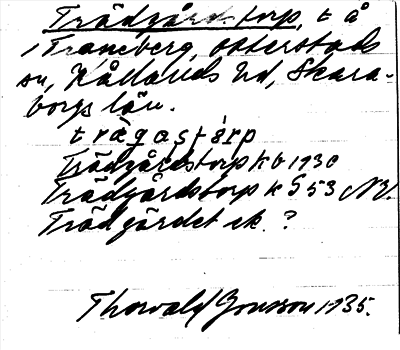 Trädgårdstorp, t å
Traneberg, Otterstads
sn, Kållands hd, Skara-
borgs län.
trägastårp
Trädgårdstorp kb 1930
Trädgårdstorp k S 53 NV.
Trädgårdet ek. ?
Thorvald Jonsson 1935.